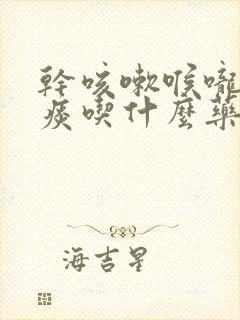 幹咳嗽喉嚨
痰喫什麼藥
海吉星